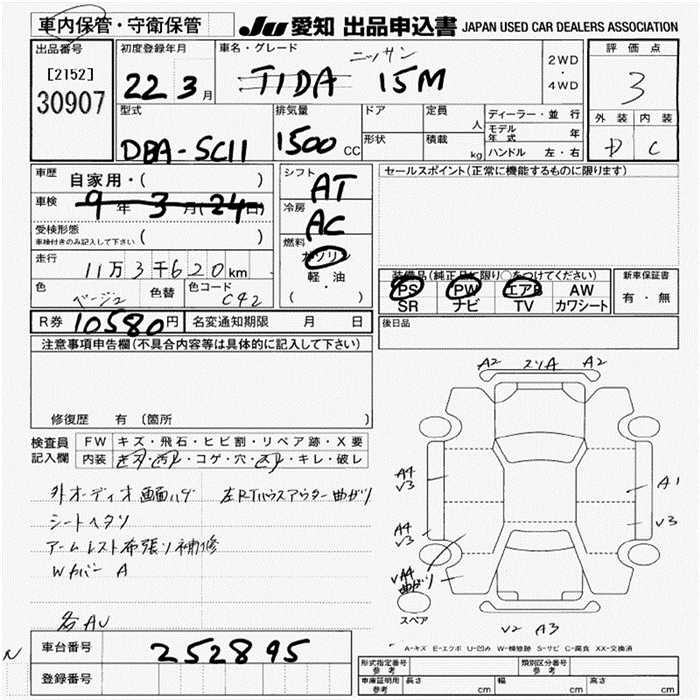 車内保管・守衛保管
JU 愛知 出品申込書 JAPAN USED CAR DEALERS ASSOCIATION
出品番号
[2152]
30907
初度登録年月
22 3 月
車名・グレード
ニッサン
TIDA 15M
2WD
・
4WD
評価点
3
外装 内装
D C
型式
DBA-SC11
排気量
1500 CC
ドア
形状
定員 人
積載 kg
ディーラー・並行
モデル年式 年
ハンドル 左・右
車歴
自家用・( )
車検
9 年 3 月(24日)
受検形態
車検付きのみ記入して下さい ( )
走行
11万3千620km
色
ベージュ
色替
色コード
C42
シフト
AT
冷房
AC
燃料
ガソリン
軽・油
( ・ )
セールスポイント(正常に機能するものに限ります)
装備品(純正品に限り○をつけてください)
PS PW エアB AW
SR ナビ TV カワシート
新車保証書
有・無
R券 10580円
名変通知期限 月 日
後日品
注意事項申告欄(不具合内容等は具体的に記入して下さい)
修復歴 有 〔箇所 〕
検査員
記入欄
FW キズ・飛石・ヒビ割・リペア跡・X要
内装 キズ・汚れ・コゲ・穴・スレ・キレ・破レ
外オーディオ画面ハゲ
左RTハウスアウター曲がり
シートヘタリ
アームレスト布張り補修
Wカバー A
各AU
A2 スリA A2
A4
V3
A4
V3
VA4
曲がり
A1
V3
スペア
V2 A3
A-キズ E-エクボ U-凹み W-補修跡 S-サビ C-腐食 XX-交換済
N
車台番号
252895
登録番号
形式指定番号
参考
類別区分番号
参考
車庫証明用
参考
長さ cm 幅 cm 高さ cm